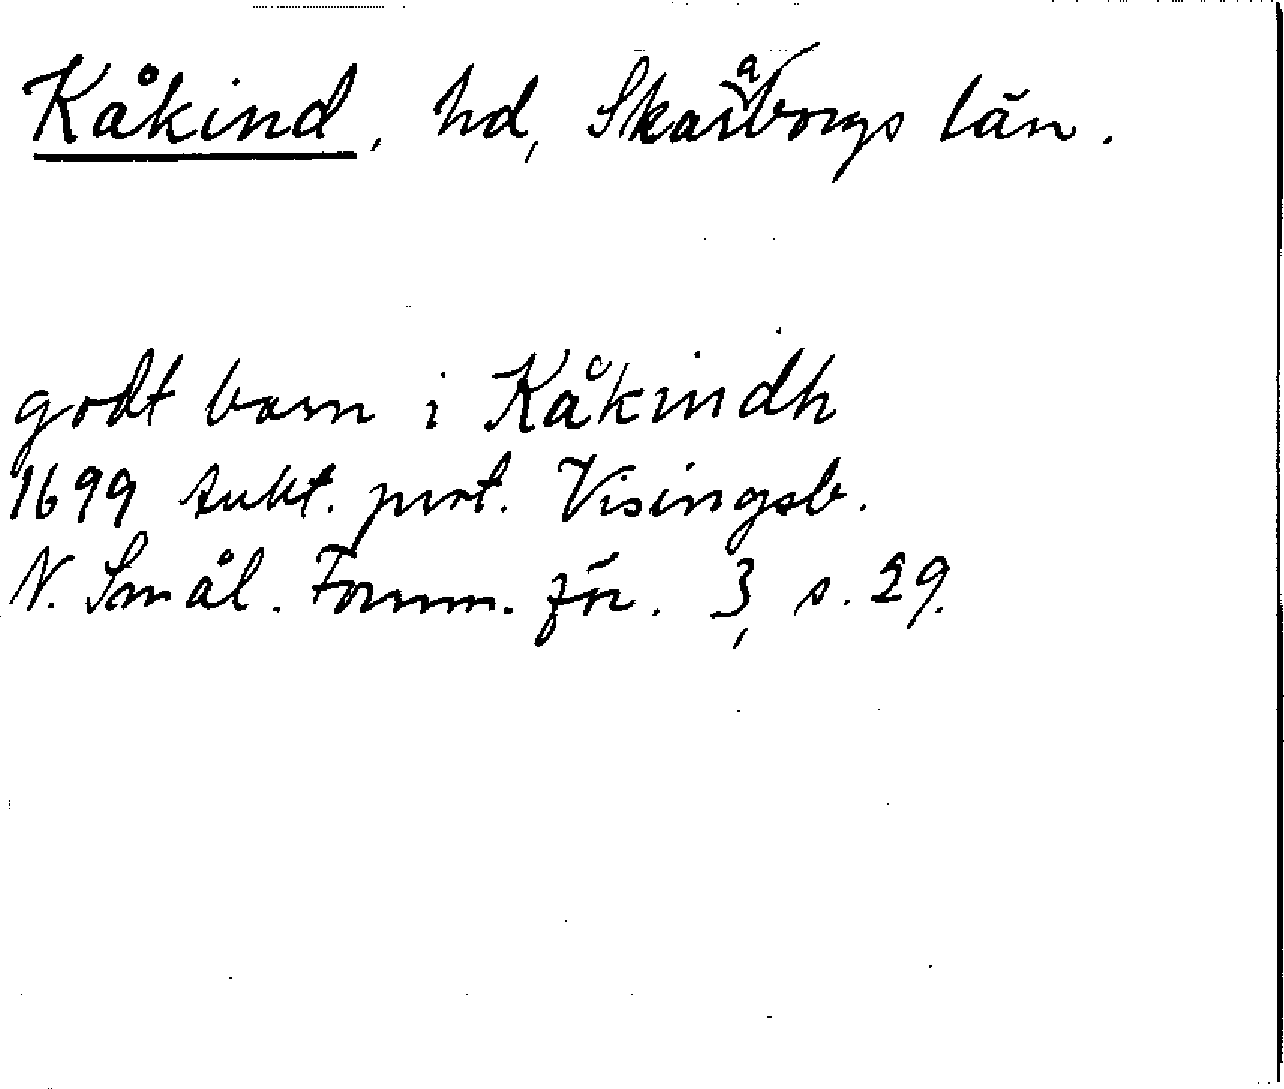 Kåkind, hd, Skaraborgs län.
godt barn i Kåkindh
1699 Aukt. prot. Visingsb.
N. Smål. Fornm. för. 3, s. 29.